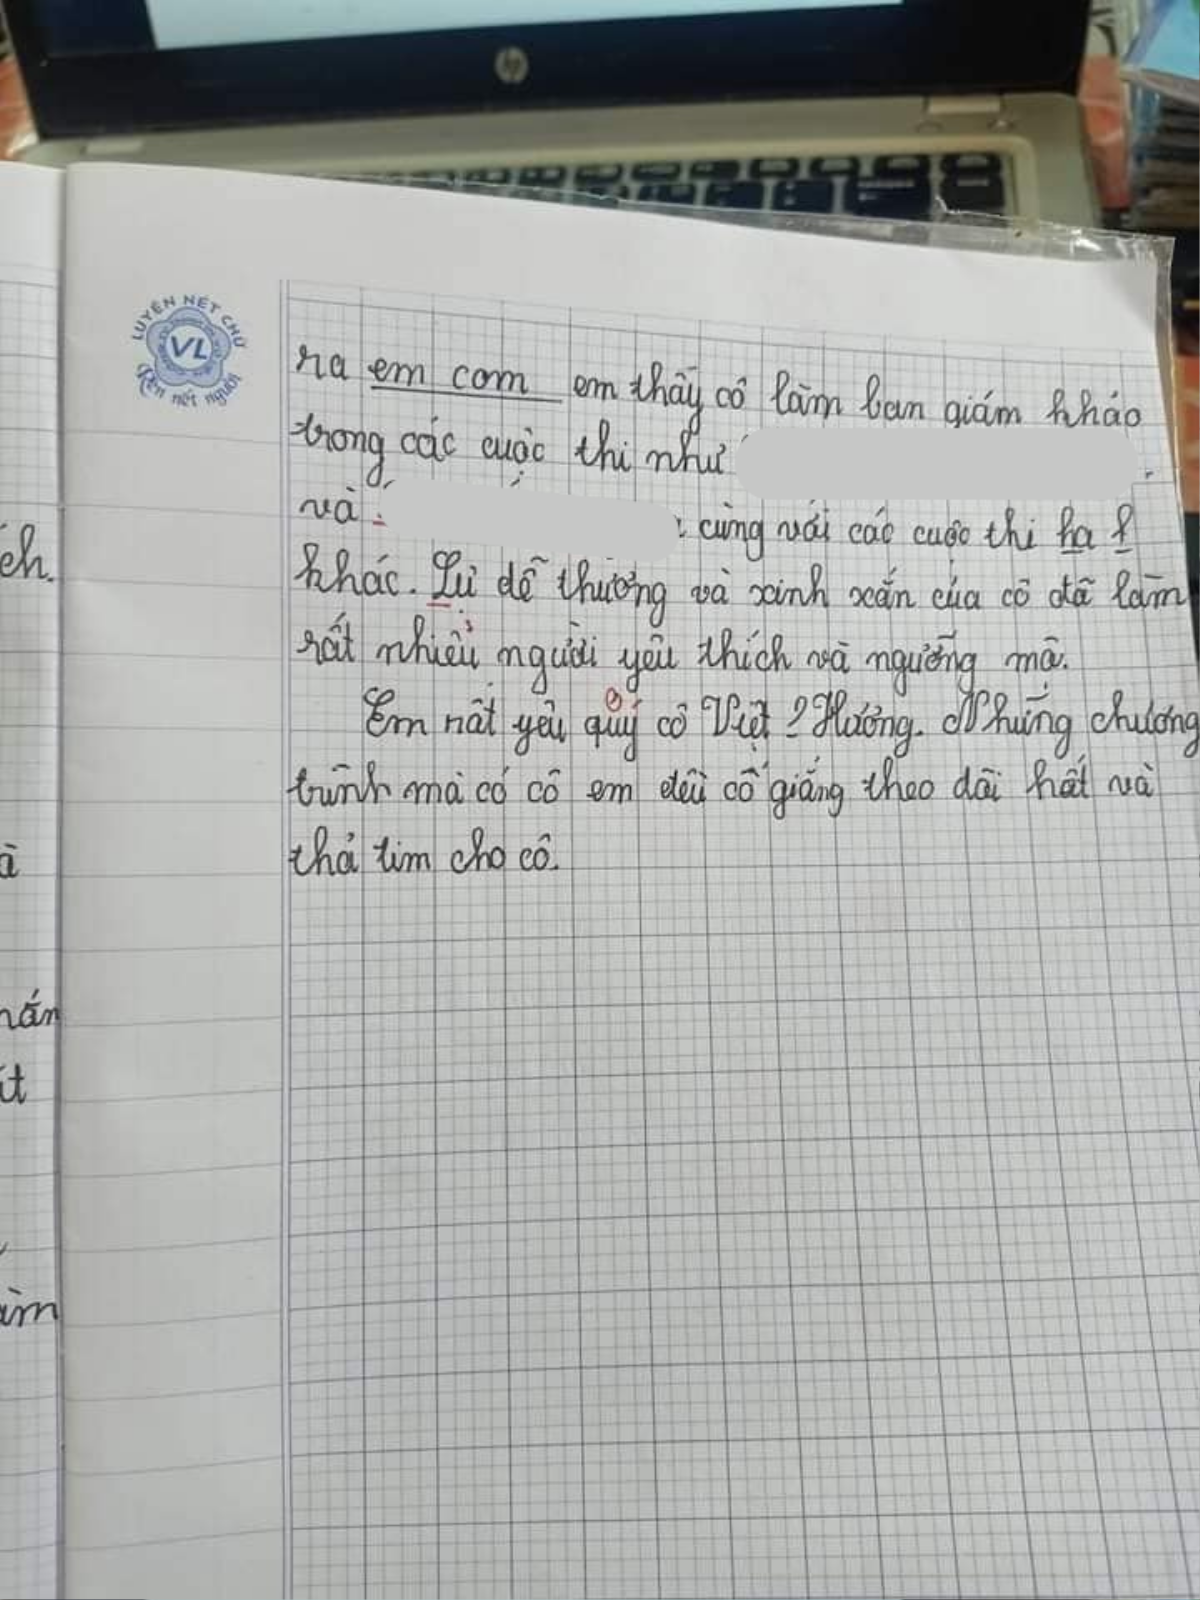 hp
LUYỆN NÉT CHỮ
VL
Rèn nét người
ra em com em thấy cô làm ban giám khảo
trong các cuộc thi như
và cùng với các cuộc thi ha f
khác. Sự dễ thương và xinh xắn của cô đã làm
rất nhiều người yêu thích và ngưỡng mộ.
Em rất yêu quý cô Việt Hương. Những chương
trình mà có cô em đều cố gắng theo dõi hết và
thả tim cho cô.